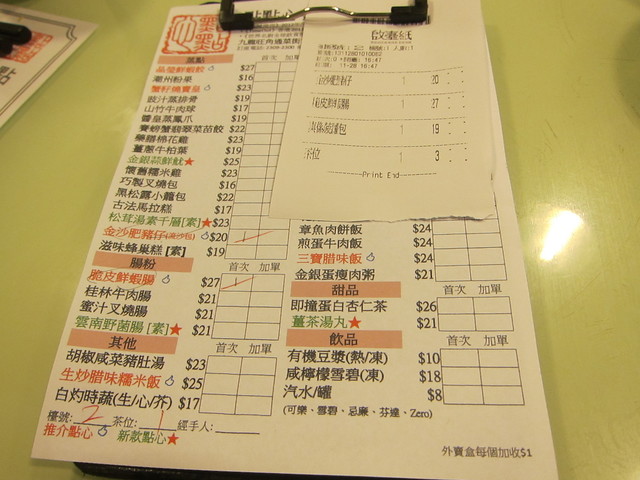 點點心
九龍旺角通菜街
蒸點 首次 加單
晶瑩鮮蝦餃 $27
潮州粉果 $16
蟹籽燒賣皇 $23
豉汁蒸排骨 $19
山竹牛肉球 $17
醬皇蒸鳳爪 $19
翡翠菜苗餃 $22
藥膳棉花雞 $23
薑蔥牛柏葉 $19
金銀蒜鮮魷★ $25
懷舊糯米雞 $23
巧製叉燒包 $16
黑松露小籠包 $22
古法馬拉糕 $17
松茸湯素千層[素]★ $23
金沙肥豬仔(流沙包) $20
滋味蜂巢糕[素] $19
腸粉 首次 加單
脆皮鮮蝦腸 $27
桂林牛肉腸 $21
蜜汁叉燒腸 $21
雲南野菌腸[素]★ $21
其他 首次 加單
胡椒咸菜豬肚湯 $23
生炒腊味糯米飯 $25
白灼時蔬(生/心/芥) $17
檯號: 2 茶位: 1 經手人:
推介點心 新款點心★
16:47
11-28 16:47
金沙肥豬仔 1 20
脆皮鮮蝦腸 1 27
1 19
茶位 1 3
Print End
章魚肉餅飯 $24
煎蛋牛肉飯 $24
三寶腊味飯 $24
金銀蛋瘦肉粥 $21
甜品 首次 加單
即撞蛋白杏仁茶 $26
薑茶湯丸★ $21
飲品 首次 加單
有機豆漿(熱/凍) $10
咸檸檬雪碧(凍) $18
汽水/罐 $8
(可樂、雪碧、忌廉、芬達、Zero)
外賣盒每個加收$1